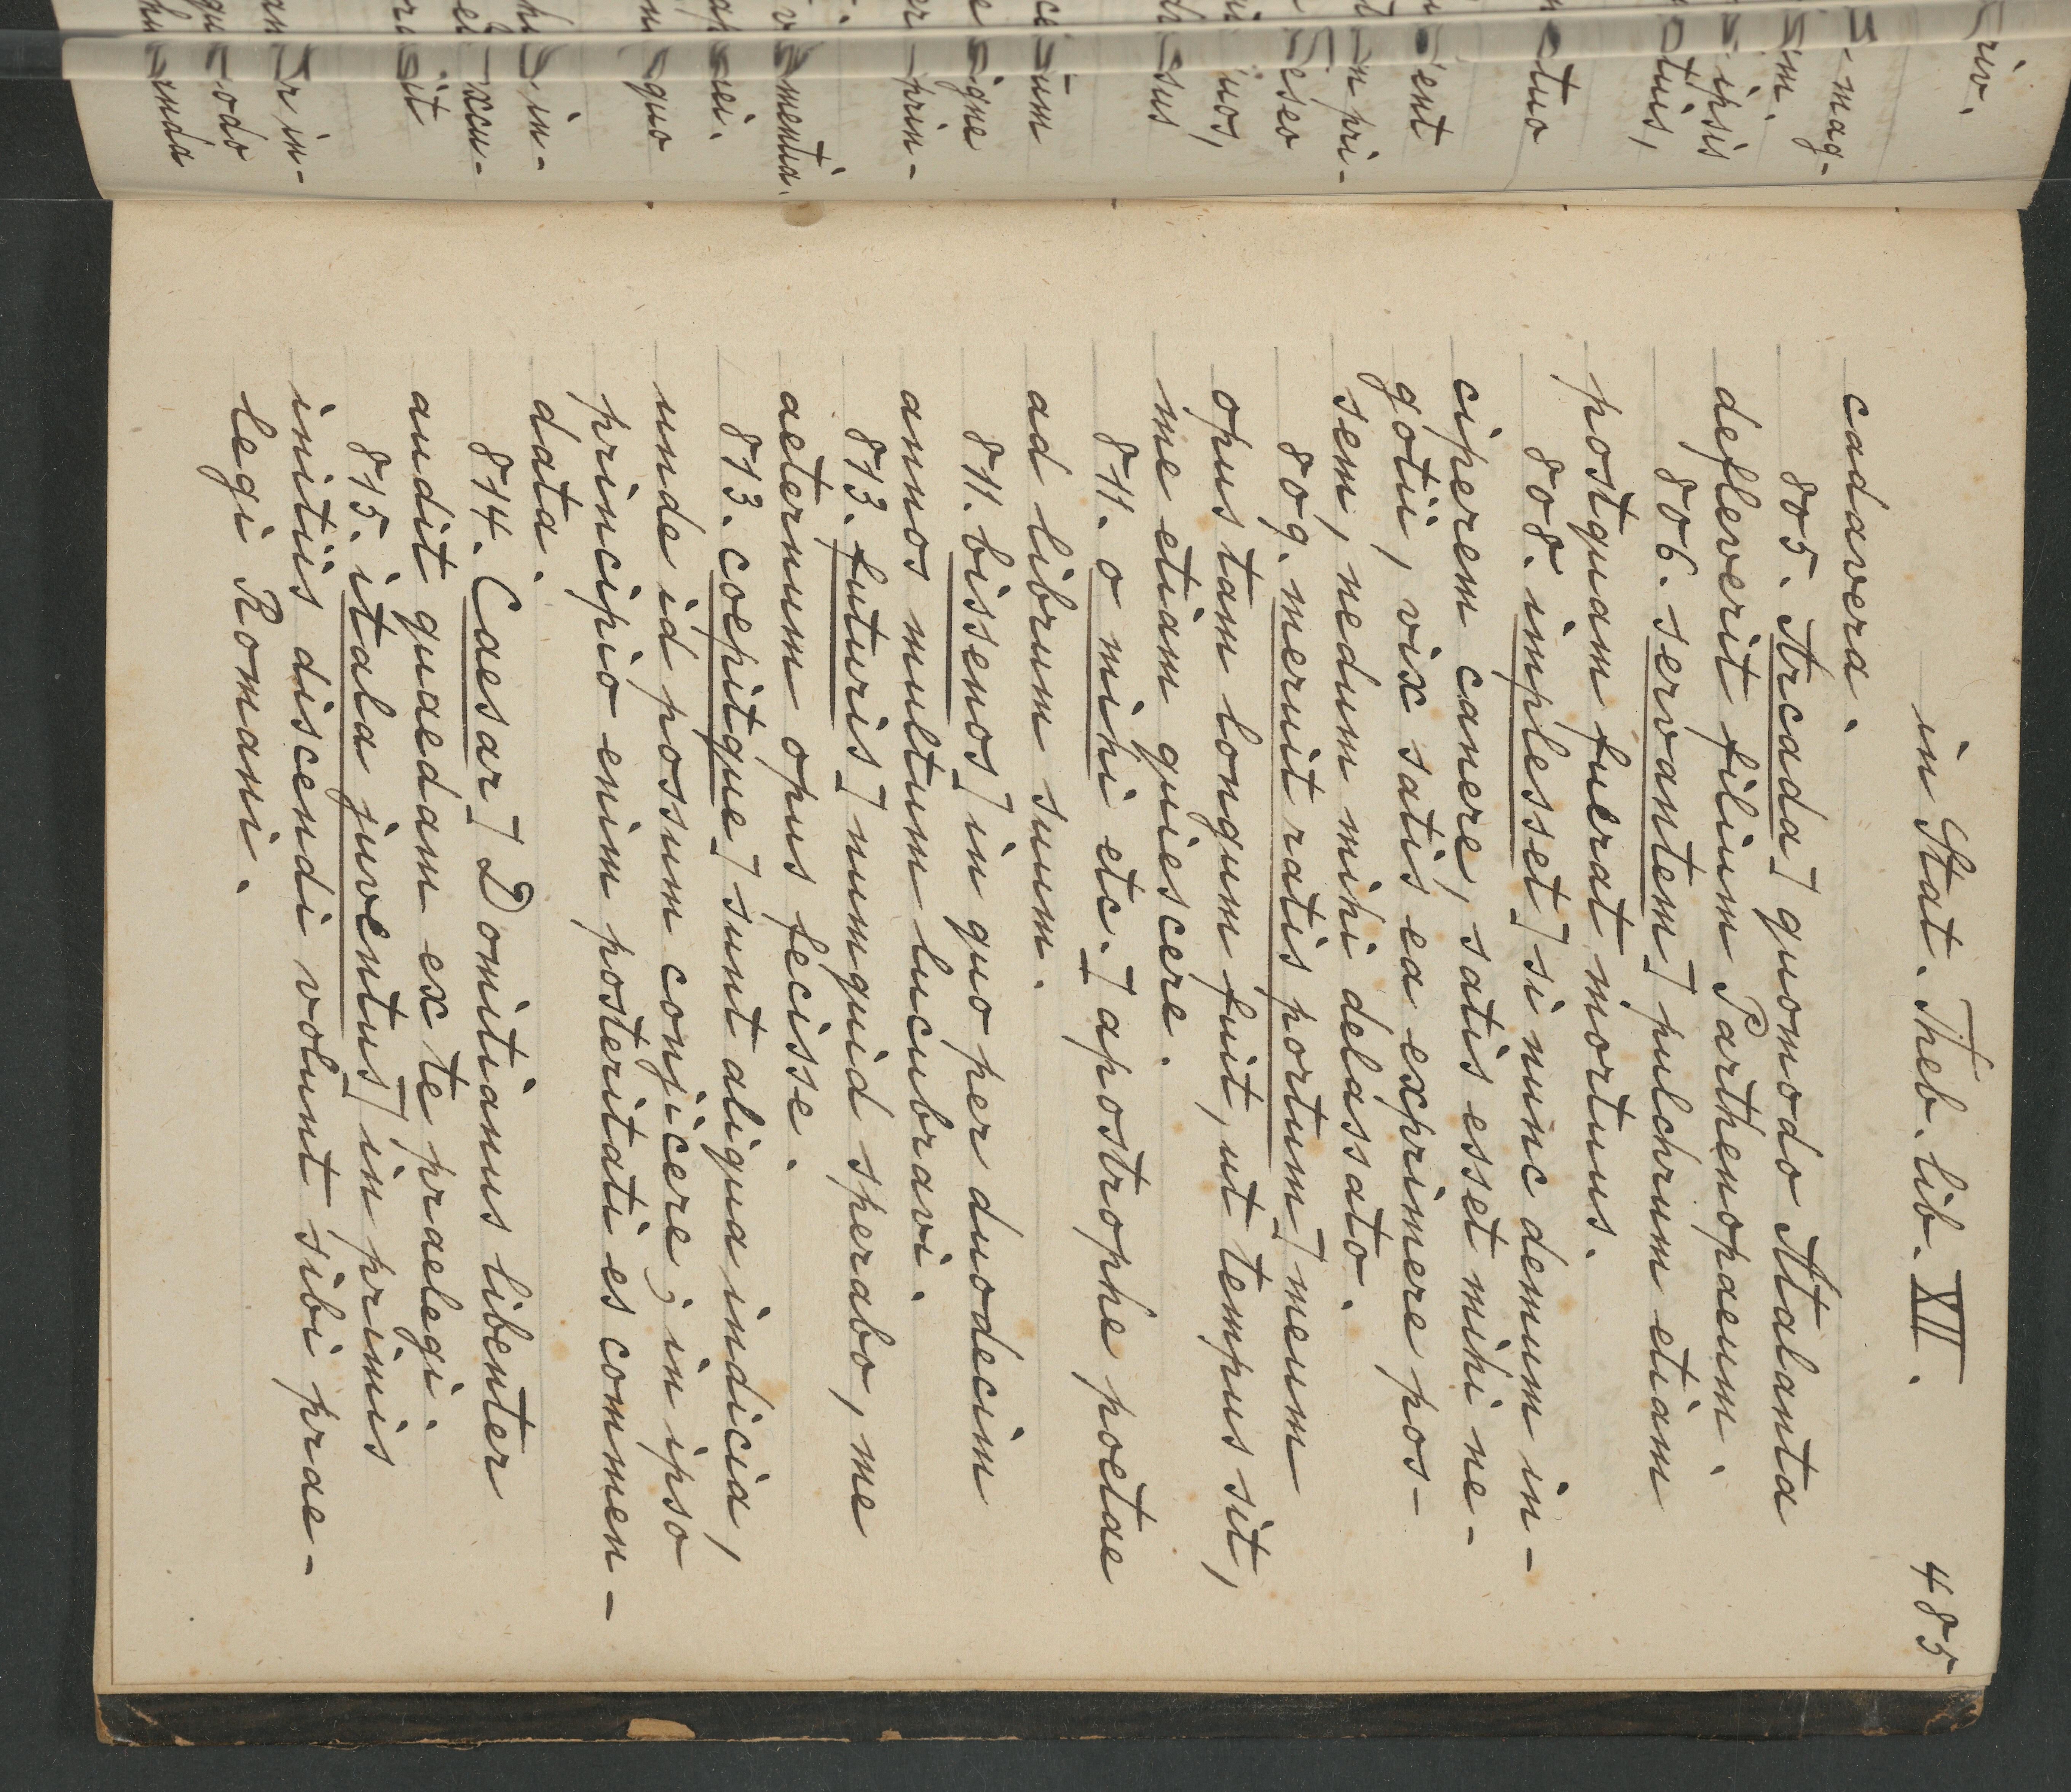 in Stat. Theb. lib. XII. 485
cadavera.
805. Arcada] quomodo Atalanta
defleverit filium Parthenopaeum.
806. servantem] pulchrum etiam
postquam fuerat mortuus.
808. implesset] si nunc demum in-
ciperem canere, satis esset mihi ne-
gotii, vix satis ea exprimere pos-
sem, nedum mihi delassato.
809. meruit ratis portum] meum
opus tam longum fuit, ut tempus sit,
me etiam quiescere.
811. o mihi etc.] apostrophe poetae
ad librum suum.
811. bissenos] in quo per duodecim
annos multum lucubravi.
813. futuris] numquid sperabo, me
aeternum opus fecisse.
813. coepitque] sunt aliqua indicia,
unde id possum conjicere; in ipso
principio enim posteritati es commen-
data.
814. Caesar] Domitianus libenter
audit quaedam ex te praelegi.
815. itala juventus] in primis
initiis discendi volunt sibi prae-
legi Romani.
riv.
mag-
ipsis
tuo
ent
pri-
eseo
uos,
sus
prin-
quo
in-
it
in-
odo